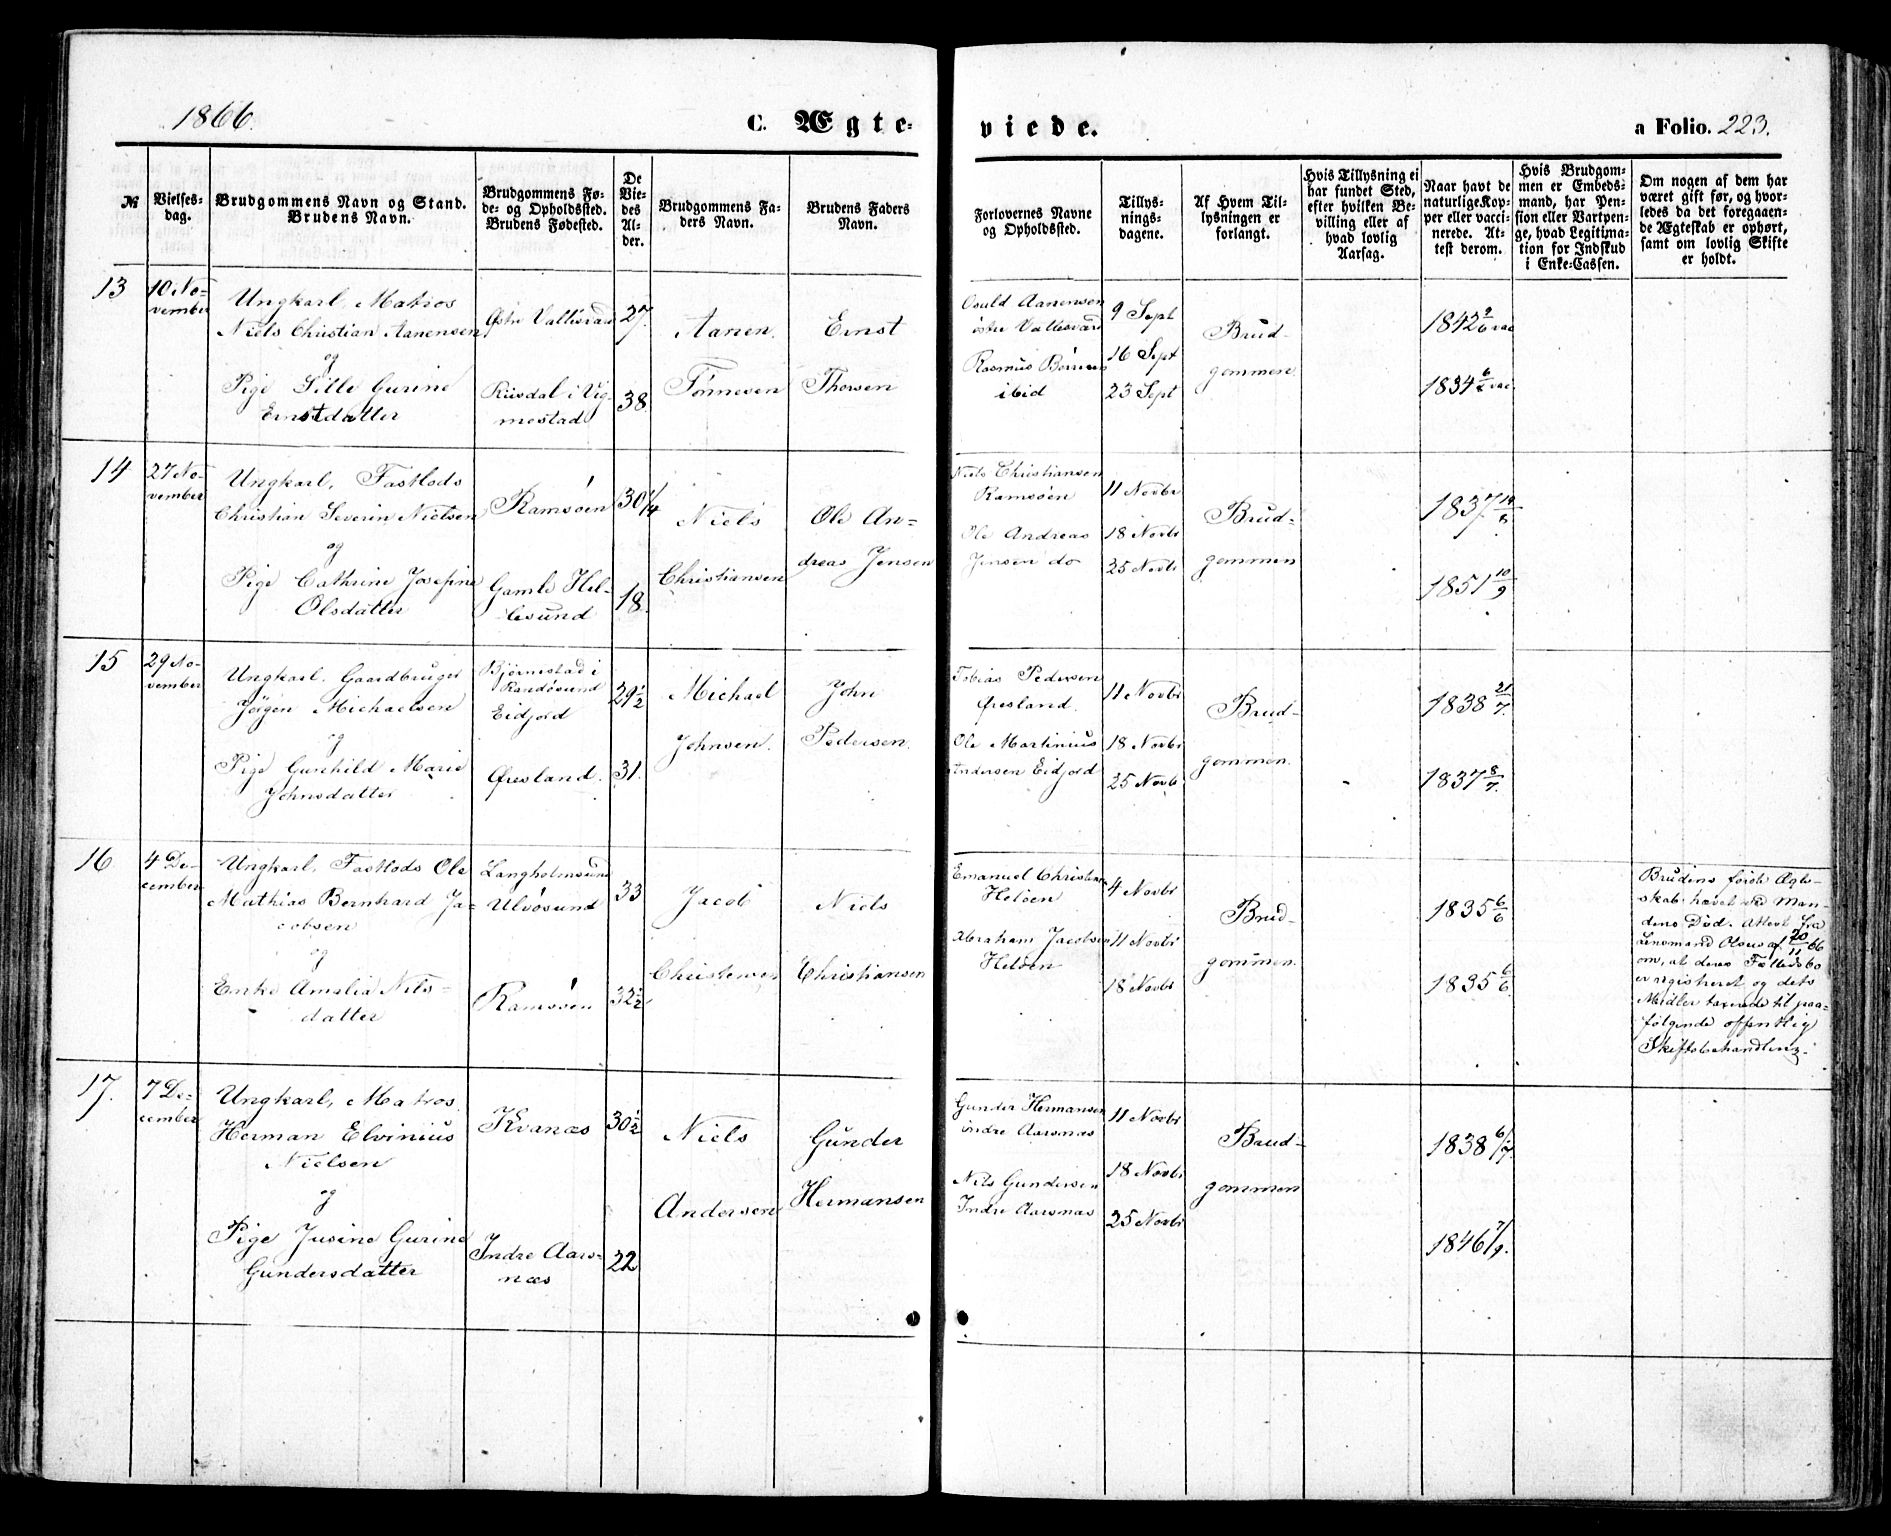 1866.
C. Ægte-
viede.
a Folio. 223.
№
Vielses-
dag.
Brudgommens Navn og Stand.
Brudens Navn.
Brudgommens Fø-
de- og Opholdssted.
Brudens Fødested.
De
Vie-
des
Al-
der.
Brudgommens Fa-
ders Navn.
Brudens Faders
Navn.
Forlovernes Navne
og Opholdssted.
Tillys-
nings-
dagene.
Af Hvem Til-
lysningen er
forlangt.
Hvis Tillysning ei
har fundet Sted,
efter hvilken Be-
villing eller af
hvad lovlig
Aarsag.
Naar havt de
naturlige Kop-
per eller vacci-
nerede. At-
test derom.
Hvis Brudgom-
men er Embeds-
mand, har Pen-
sion eller Vartpen-
ge, hvad Legitima-
tion for Indskud
i Enke-Cassen.
Om nogen af dem har
været gift før, og hvor-
ledes da det foregaaen-
de Ægteskab er ophørt,
samt om lovlig Skifte
er holdt.
13
10 No-
vember
Ungkarl, Matros
Niels Christian Aanensen
og
Pige Sille Gurine
Ernstdatter
Østre Vallesvær
Riisdal i Vig-
mostad
27
38
Aanen
Tønnesen
Ernst
Thorsen
Osuld Aanensen
østre Vallesværd
Rasmus
ibid
9 Sept
16 Sept
23 Sept
Brud-
gommen
1842 9/6 vac
1834 6/ vac
14
27 No-
vember
Ungkarl, Fastlods
Christian Severin Nielsen
og
Pige Cathrine Josefine
Olsdatter
Ramsöen
Gamle Hel-
lesund
30 1/4
18
Niels
Christiansen
Ole An-
dreas Jensen
Niels Christiansen
Ramsöen
Ole Andreas
Jensen do
11 Novbr
18 Novbr
25 Novbr
Brud-
gommen
1837
1851 10/9
15
29 No-
vember
Ungkarl. Gaardbruger
Jörgen Michaelsen
og
Pige Gunhild Marie
Johnsdatter
Bjørnestad i
Randösund
Eidjord
Øresland.
29 1/2
31.
Michael
Johnsen.
John
Pedersen.
Tobias Pedersen
Øresland.
Ole Martinius
Andersen Eidjord
11 Novbr
18 Novbr
25 Novb
Brud-
gommen.
1838 21/7.
1837 8/7.
16
4 De-
cember
Ungkarl, Fastlods Ole
Mathias Bernhard Ja-
cobsen
og
Enke Amalia Nils-
datter
Langholmsund
Ulvösund
Ramsöen
33
32 1/2
Jacob
Christensen
Niels
Christiansen
Emanuel Christensen
Helöen
Abraham Jacobsen
Helöen
4 Novbr
11 Novbr
18 Novbr
Brud-
gommen.
1835 6/6
1835 6/6
Brudens förste Ægte-
skab hævet ved Man-
dens Död. Attest fra
Lensmand Olsen af 20/11 66
om, at deres Fællesbo
er registreret og dets
Midler taxerede til paa-
følgende offentlig
Skiftebehandling.
17.
7 De-
cember
Ungkarl, Matros
Herman Elvinius
Nielsen
og
Pige Jusine Gurine
Gundersdatter
Kvanæs
Indre Aars-
næs
30 1/2
22
Niels
Andersen
Gunder
Hermansen
Gunder Hermansen
indre Aarsnæs
Nils Gundersen
Indre Aarsnæs
11 Novbr
18 Novbr
25 Novbr
Brud-
gommen
1838 6/7.
1846 7/9.